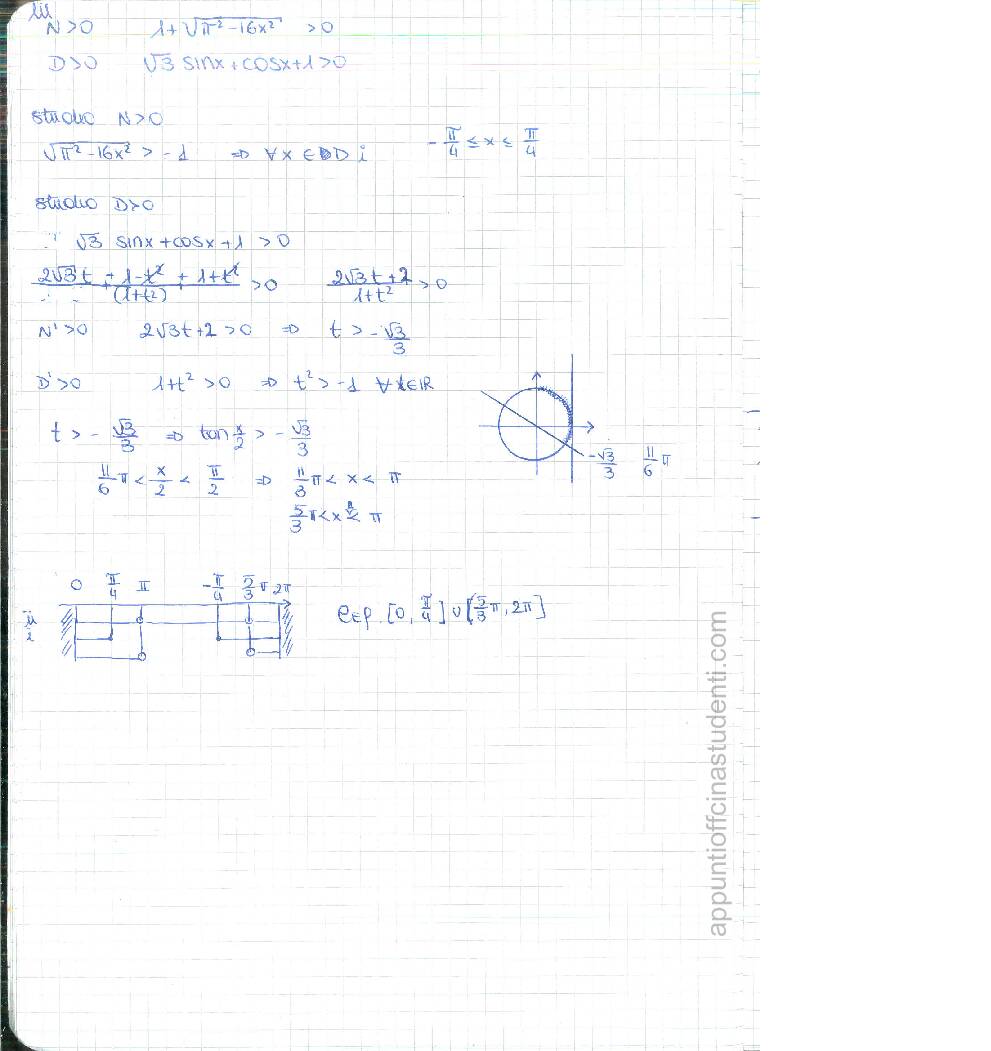 iii
N>0 1+√π²-16x² >0
D>0 √3 sinx+cosx+1>0
studio N>0
√π²-16x² > -1 ⇒ ∀x∈DD i -π/4 ≤ x ≤ π/4
studio D>0
√3 sinx+cosx+1 >0
2√3t + 1-t² + 1+t² / (1+t²) >0 2√3t+2 / 1+t² >0
N'>0 2√3t+2 >0 ⇒ t > -√3/3
D'>0 1+t² >0 ⇒ t² > -1 ∀x∈IR
t > -√3/3 ⇒ tan x/2 > -√3/3
-√3/3 11/6 π
11/6 π < x/2 < π/2 ⇒ 11/3 π < x < π
5/3 π < x < π
0 π/4 π -π/4 5/3 π 2π
ii
i
C.E.f. [0, π/4] ∪ [5/3 π, 2π]
appuntioffcinastudenti.com